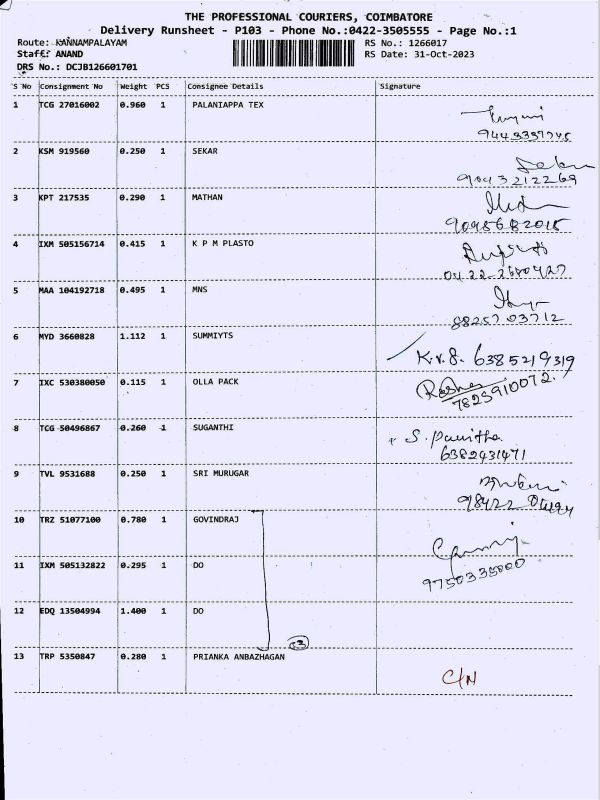 THE PROFESSIONAL COURIERS, COIMBATORE
Delivery Runsheet - P103 - Phone No.:0422-3505555 - Page No.:1
Route: KANNAMPALAYAM RS No.: 1266017
Staff: ANAND RS Date: 31-Oct-2023
DRS No.: DCJB126601701
S No Consignment No Weight PCS Consignee Details Signature
1 TCG 27016002 0.960 1 PALANIAPPA TEX
2 KSM 919560 0.250 1 SEKAR
9043212269
3 KPT 217535 0.290 1 MATHAN
9095682015
4 IXM 505156714 0.415 1 K P M PLASTO
0422-2680427
5 MAA 104192718 0.495 1 MNS
8825703712
6 MYD 3660828 1.112 1 SUMMIYTS
K.V.S. 6385219319
7 IXC 530380050 0.115 1 OLLA PACK
7825910072.
8 TCG 50496867 0.260 1 SUGANTHI
S. Pavithra
6382431471
9 TVL 9531688 0.250 1 SRI MURUGAR
10 TRZ 51077100 0.780 1 GOVINDRAJ
11 IXM 505132822 0.295 1 DO
9750335000
12 EDQ 13504994 1.400 1 DO
13 TRP 5350847 0.280 1 PRIANKA ANBAZHAGAN
C/N